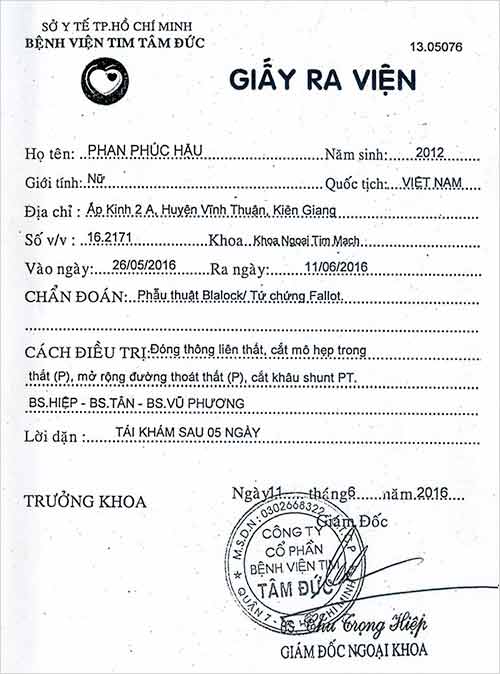 SỞ Y TẾ TP.HỒ CHÍ MINH
BỆNH VIỆN TIM TÂM ĐỨC
13.05076
GIẤY RA VIỆN
Họ tên: PHAN PHÚC HẬU Năm sinh: 2012
Giới tính: Nữ Quốc tịch: VIỆT NAM
Địa chỉ : Áp Kinh 2 A, Huyện Vĩnh Thuận, Kiên Giang
Số v/v : 16.2171 Khoa Khoa Ngoại Tim Mạch
Vào ngày: 26/05/2016 Ra ngày: 11/06/2016
CHẨN ĐOÁN: Phẫu thuật Blalock/ Tứ chứng Fallot.
CÁCH ĐIỀU TRỊ: Đóng thông liên thất, cắt mô hẹp trong
thất (P), mở rộng đường thoát thất (P), cắt khâu shunt PT.
BS.HIỆP - BS.TÂN - BS.VŨ PHƯƠNG
Lời dặn : TÁI KHÁM SAU 05 NGÀY
Ngày 11 tháng 6 năm 2016
TRƯỞNG KHOA
Giám Đốc
M.S.D.N: 0302668322
CÔNG TY
CỔ PHẦN
BỆNH VIỆN TIM
TÂM ĐỨC
QUẬN 7 - TP. HỒ CHÍ MINH
BS. Chu Trọng Hiệp
GIÁM ĐỐC NGOẠI KHOA